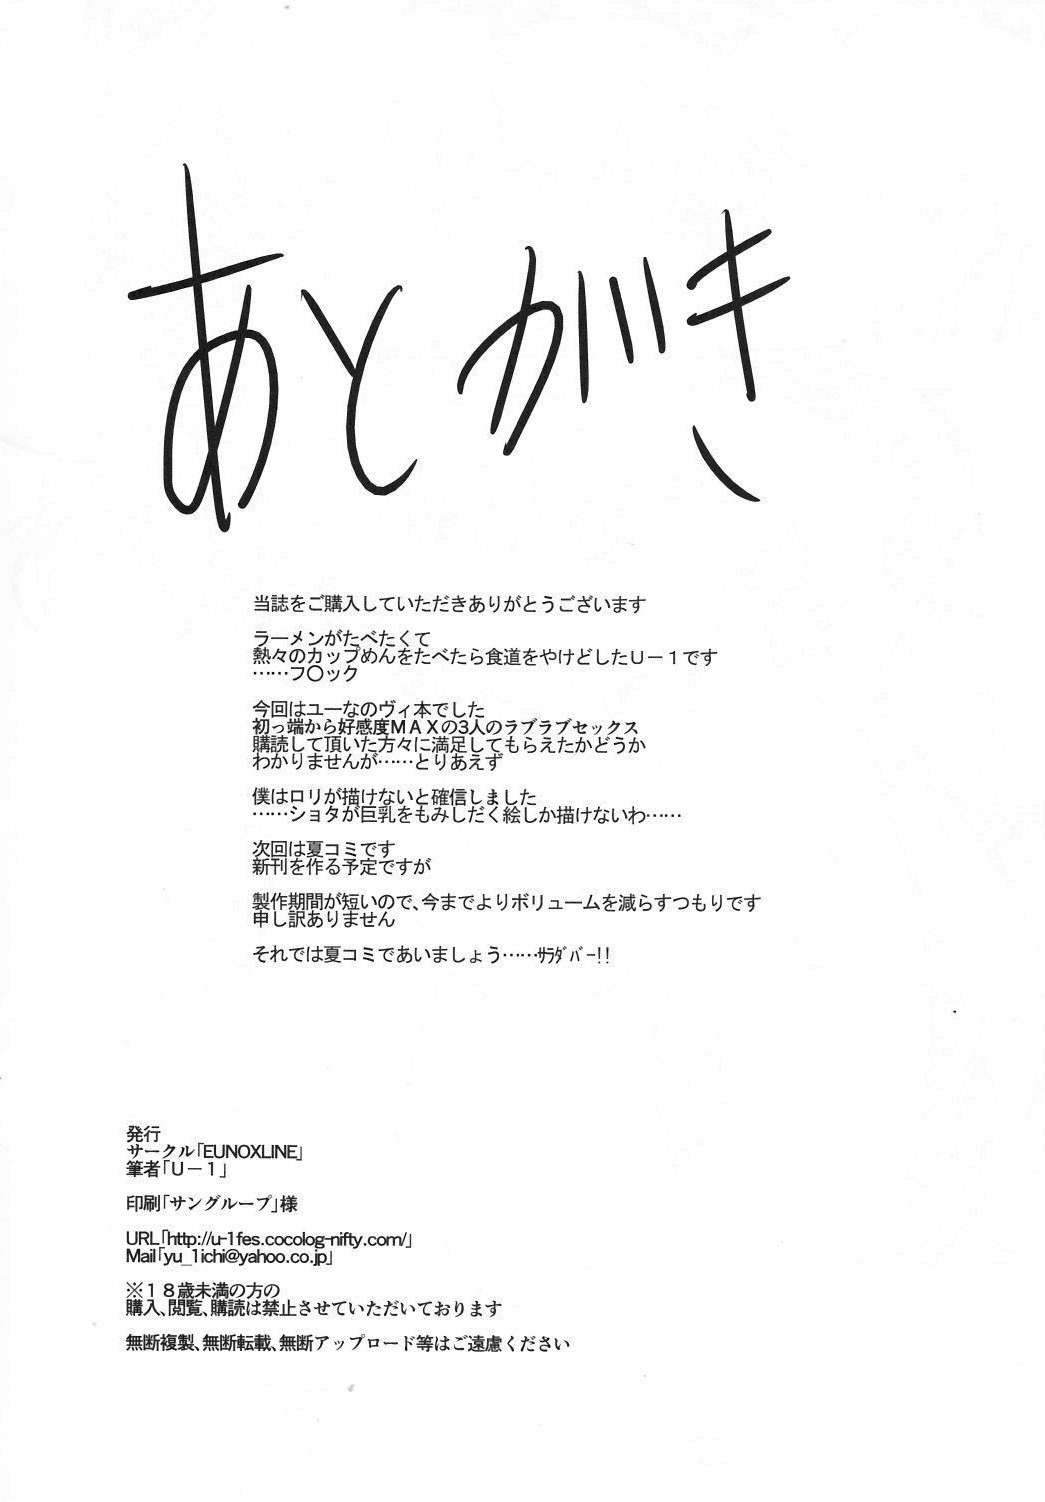 あとがき
当誌をご購入していただきありがとうございます
ラーメンがたべたくて
熱々のカップめんをたべたら食道をやけどしたU－1です
……フ〇ック
今回はユーなのヴィ本でした
初っ端から好感度ＭＡＸの3人のラブラブセックス
購読して頂いた方々に満足してもらえたかどうか
わかりませんが……とりあえず
僕はロリが描けないと確信しました
……ショタが巨乳をもみしだく絵しか描けないわ……
次回は夏コミです
新刊を作る予定ですが
製作期間が短いので、今までよりボリュームを減らすつもりです
申し訳ありません
それでは夏コミであいましょう……ｻﾗﾀﾞﾊﾞｰ!!
発行
サークル「EUNOXLINE」
筆者「U－1」
印刷「サングループ」様
URL「http://u-1fes.cocolog-nifty.com/」
Mail「yu_1ichi@yahoo.co.jp」
※１８歳未満の方の
購入、閲覧、購読は禁止させていただいております
無断複製、無断転載、無断アップロード等はご遠慮ください